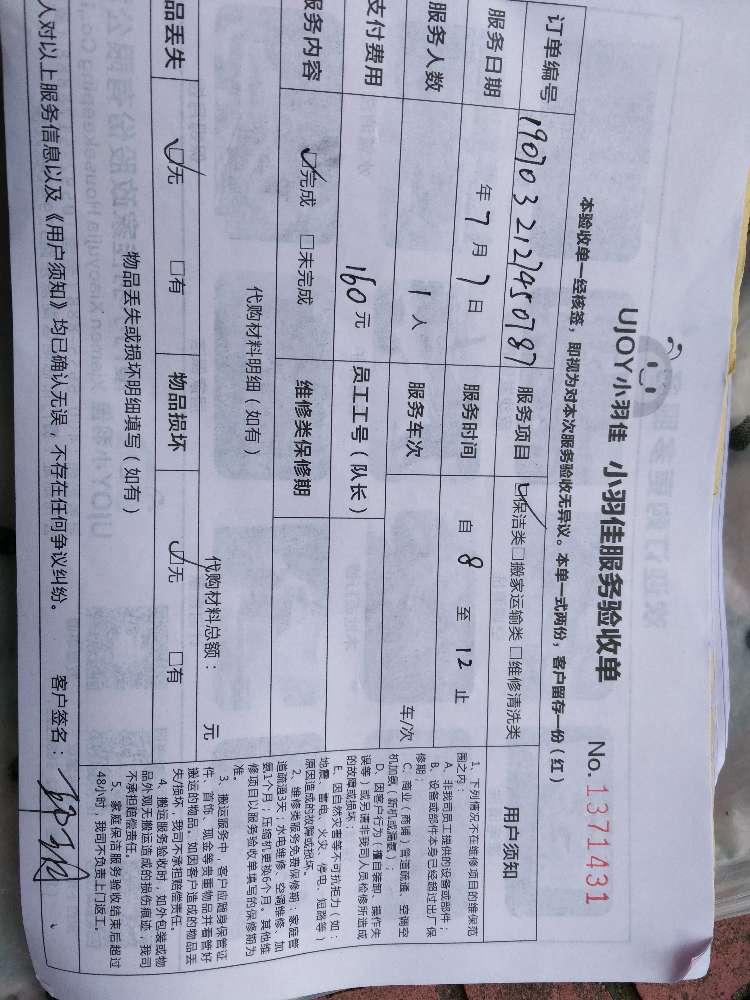 UJOY小羽佳 小羽佳服务验收单
No. 1371431
本验收单一经核签，即视为对本次服务验收无异议。本单一式两份，客户留存一份（红）
订单编号 1907032127450787 服务项目 ☑保洁类□搬家运输类 □维修清洗类
服务日期 年 7 月 7 日 服务时间 自 8 至 12 止
服务人数 1 人 服务车次 车/次
支付费用 160 元 员工工号（队长）
服务内容 ☑完成 □未完成 维修类保修期
代购材料明细（如有）
代购材料总额： 元
品丢失 ☑无 □有 物品损坏 ☑无 □有
物品丢失或损坏明细填写（如有）
人对以上服务信息以及《用户须知》均已确认无误，不存在任何争议纠纷。
客户签名：
用户须知
1、下列情况不在维修项目的维保范
围之内：
A、非我司员工提供的设备或部件；
B、设备或部件本身已经超过出厂保
修期；
C、商业（商铺）管道疏通、空调空
机加氨（新机或漏氨）；
D、因客户行为（擅自装卸、操作失
误等）或另请非我司人员检修所造成
的故障或损坏
E、因自然灾害等不可抗拒力（如：
地震、雷电、火灾、停电、短路等）
原因造成的故障或损坏。
2、维修类服务免费保修期：家庭管
道疏通3天；水电维修、空调维修、加
氨1个月；压缩机更换6个月。其他维
修项目以服务验收单填写的保修期为
准。
3、搬运服务中，客户应随身保管证
件、首饰、现金等贵重物品并看管好
搬运的物品。如因客户造成的物品丢
失/损坏，我司不承担赔偿责任。
4、搬运服务验收时，如外包装或物
品外观无搬运造成的损伤痕迹，我司
不承担赔偿责任。
5、家庭保洁服务验收结束后超过
48小时，我司不负责上门返工。